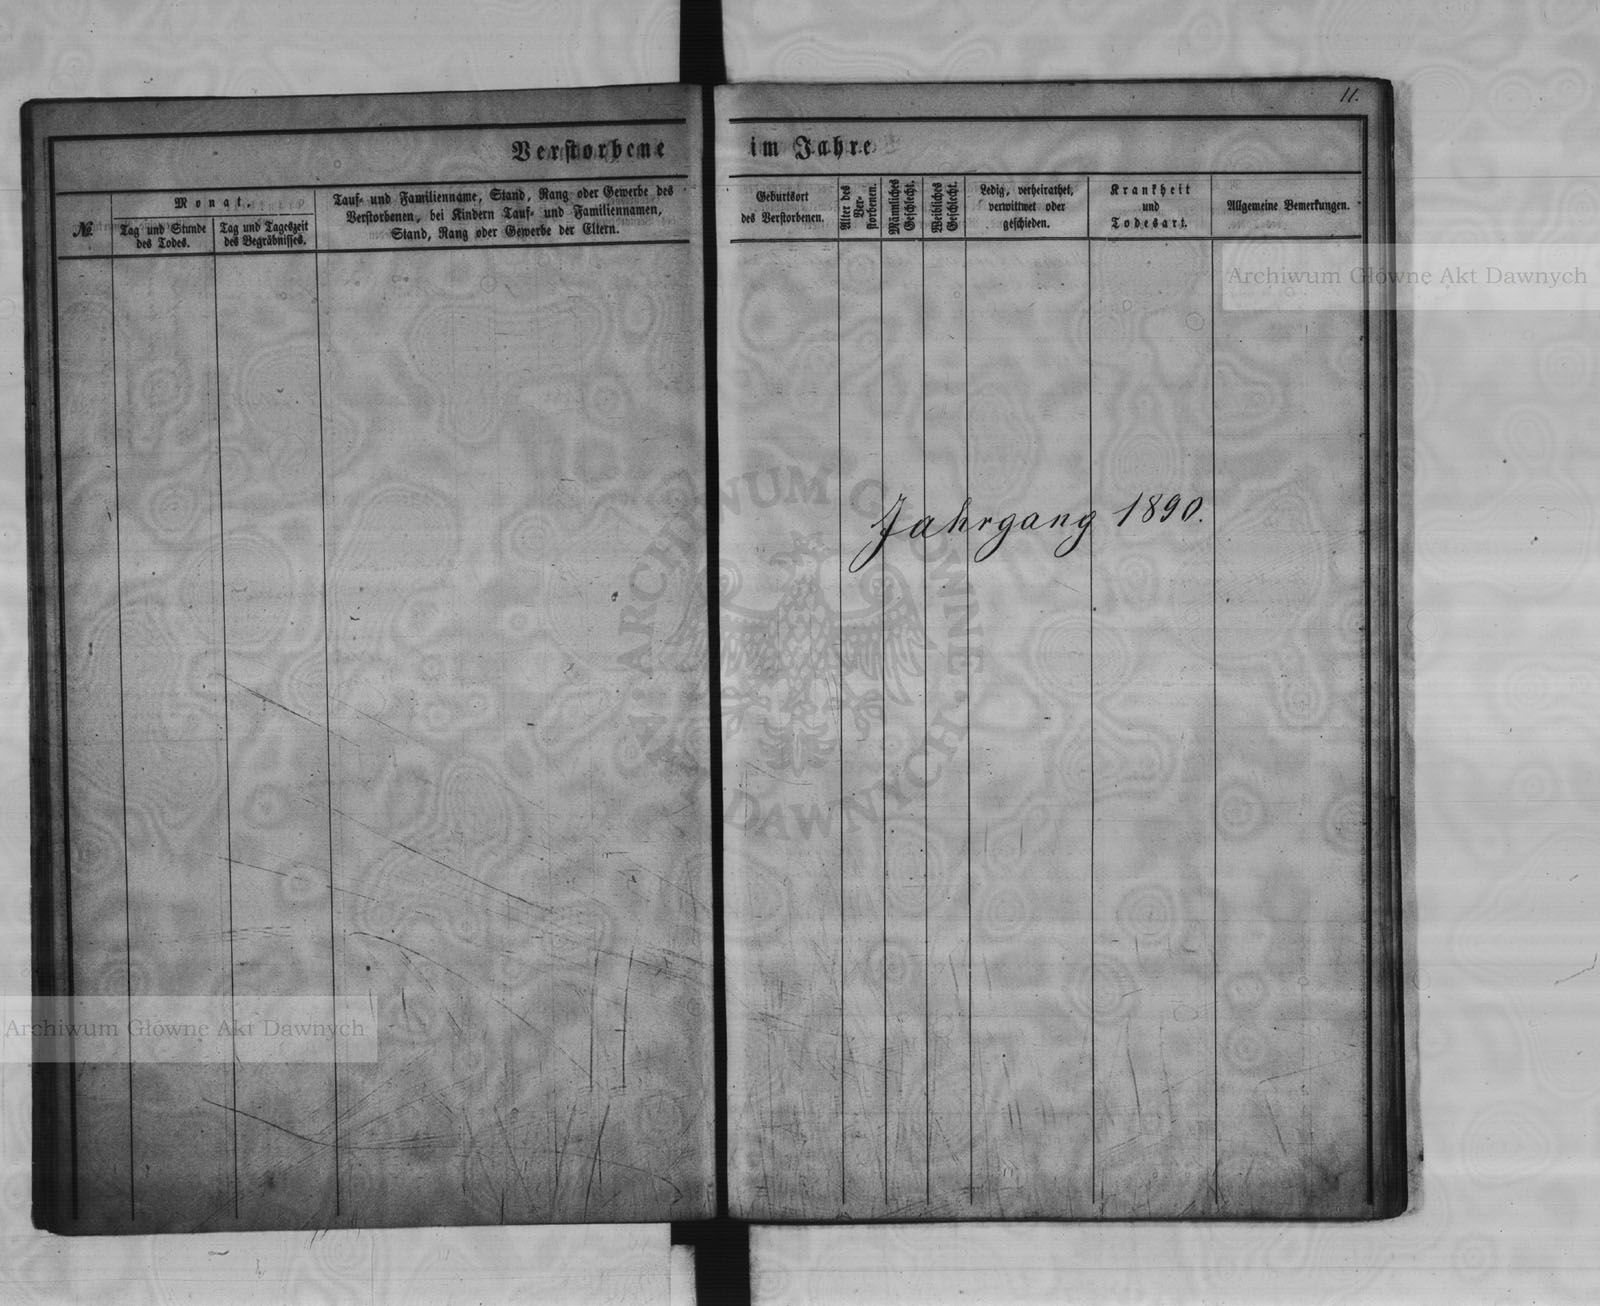 11.
Verstorbene im Jahre
№
Monat.
Tag und Stunde
des Todes.
Tag und Tageszeit
des Begräbnisses.
Tauf- und Familienname, Stand, Rang oder Gewerbe des
Verstorbenen, bei Kindern Tauf- und Familiennamen,
Stand, Rang oder Gewerbe der Eltern.
Geburtsort
des Verstorbenen.
Alter des
Ver-
storbenen.
Männliches
Geschlecht.
Weibliches
Geschlecht.
Ledig, verheirathet,
verwittwet oder
geschieden.
Krankheit
und
Todesart.
Allgemeine Bemerkungen.
Archiwum Główne Akt Dawnych
Jahrgang 1890.
ARCHIWUM GŁÓWNE AKT DAWNYCH
Archiwum Główne Akt Dawnych